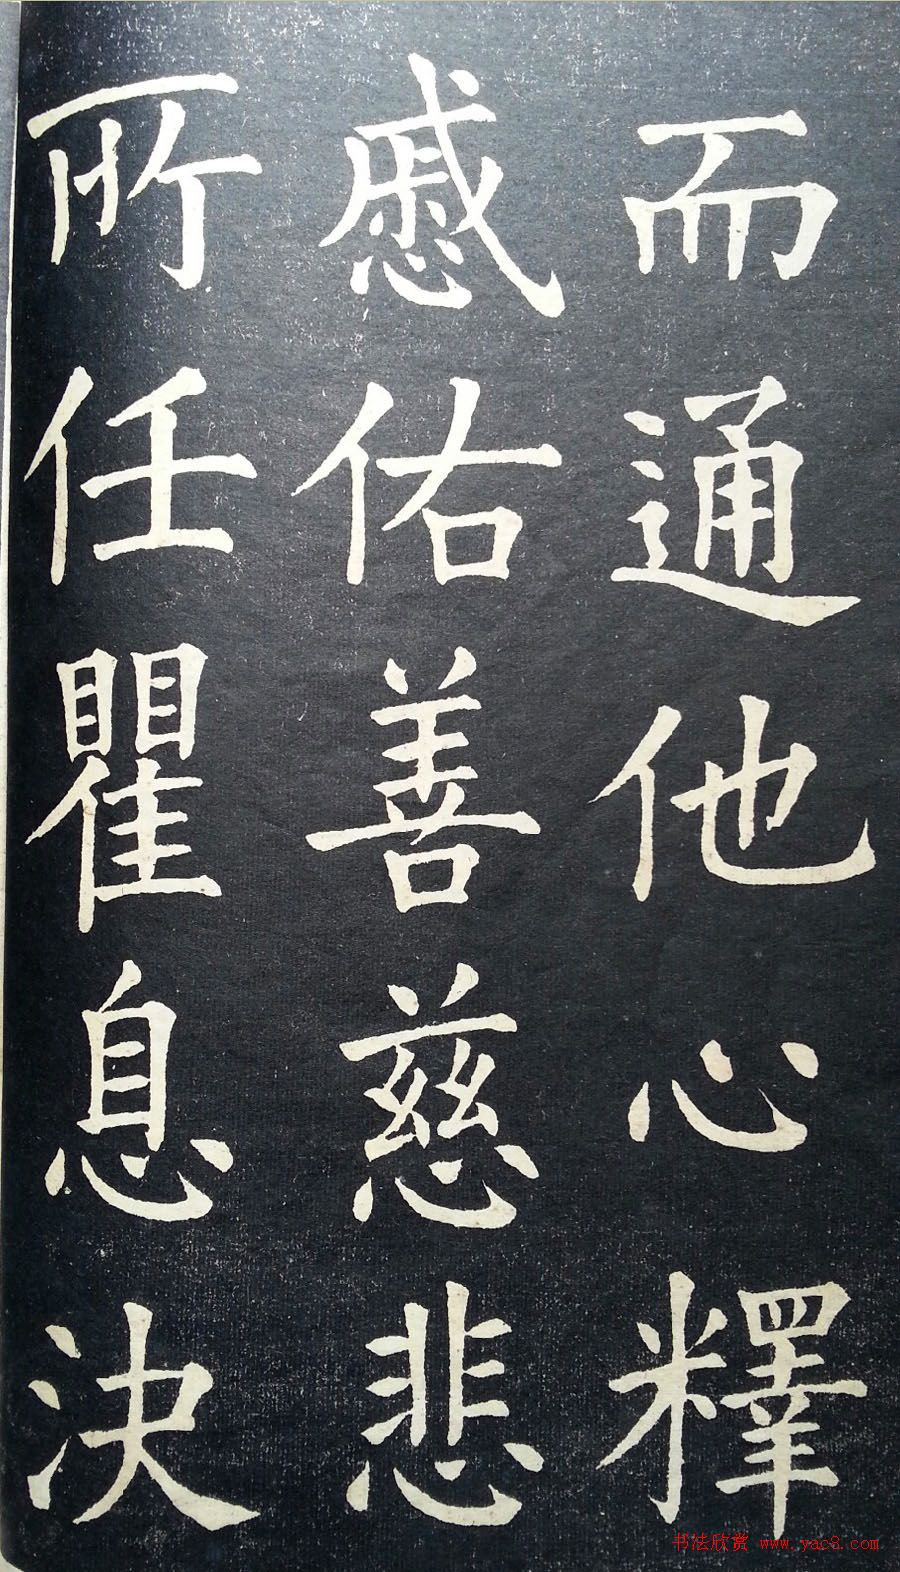 而通他心釋
慼佑善慈悲
所任瞿息決
书法欣赏 www.yac8.com